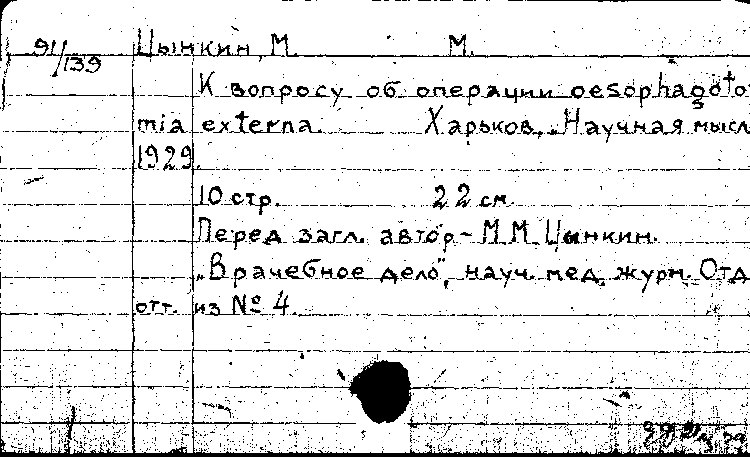 91/139 Цынкин, М. М.
К вопросу об операции oesophagoto
mia externa. Харьков, „Научная мысл
1929.
10 стр. 22 см
Перед загл. автор - М. М. Цынкин.
„Врачебное дело", науч. мед. журн. Отд.
отт. из № 4.